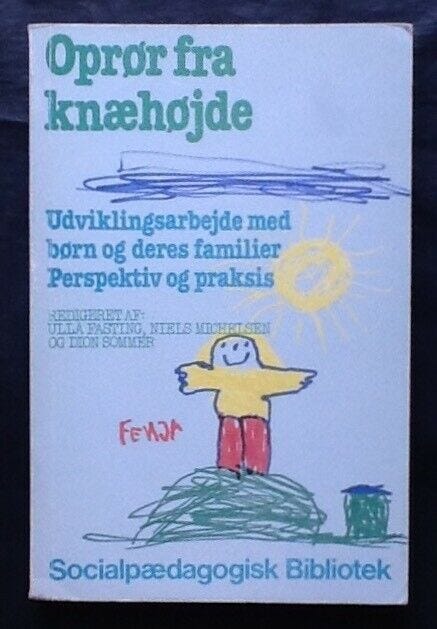 Oprør fra
knæhøjde
Udviklingsarbejde med
børn og deres familier
Perspektiv og praksis
REDIGERET AF:
ULLA FASTING, NIELS MICHELSEN
OG DION SOMMER
Fenja
Socialpædagogisk Bibliotek